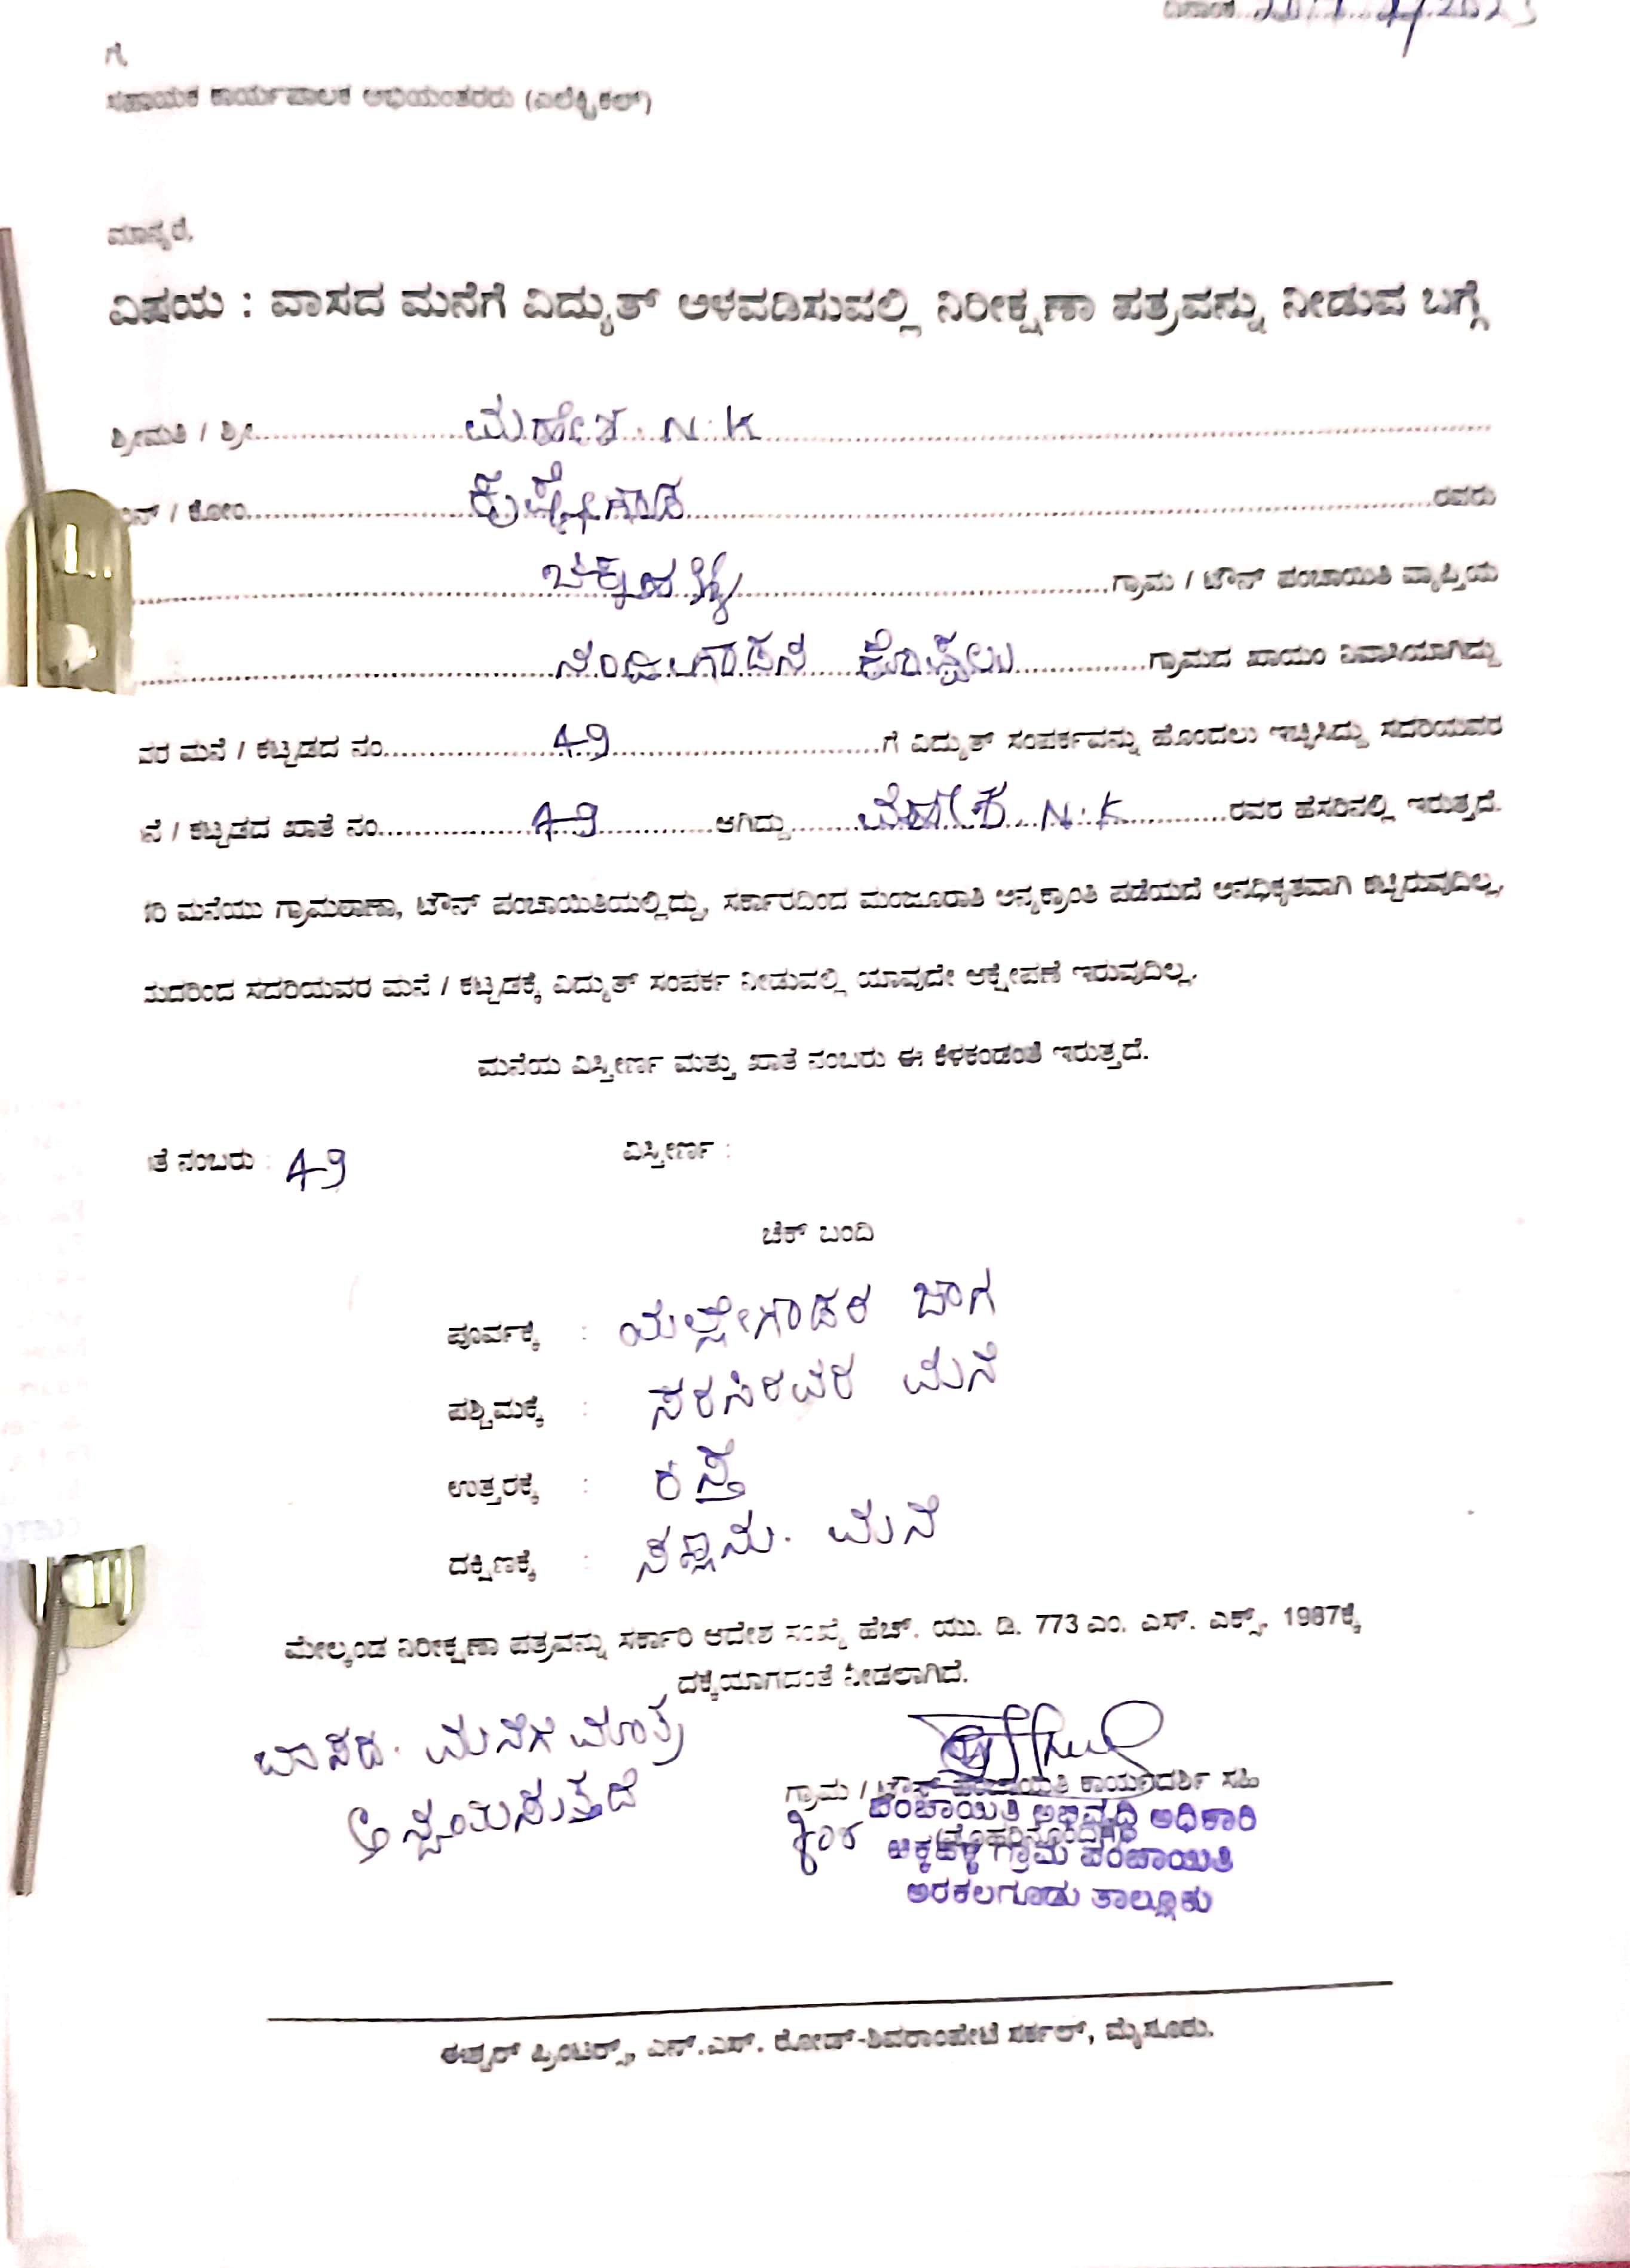 ಗೆ,
ಸಹಾಯಕ ಕಾರ್ಯಪಾಲಕ ಅಭಿಯಂತರರು (ಎಲೆಕ್ಟ್ರಿಕಲ್)
ಮಾನ್ಯರೆ,
ವಿಷಯ : ವಾಸದ ಮನೆಗೆ ವಿದ್ಯುತ್ ಅಳವಡಿಸುವಲ್ಲಿ ನಿರೀಕ್ಷಣಾ ಪತ್ರವನ್ನು ನೀಡುವ ಬಗ್ಗೆ
ಶ್ರೀಮತಿ / ಶ್ರೀ ಮಹೇಶ. N.K
ಬಿನ್ / ಕೋಂ ರವರು
ಚಿಕ್ಕಹಳ್ಳಿ ಗ್ರಾಮ / ಟೌನ್ ಪಂಚಾಯಿತಿ ವ್ಯಾಪ್ತಿಯ
ಕೊಪ್ಪಲು ಗ್ರಾಮದ ಖಾಯಂ ನಿವಾಸಿಯಾಗಿದ್ದು
ವರ ಮನೆ / ಕಟ್ಟಡದ ನಂ 49 ಗೆ ವಿದ್ಯುತ್ ಸಂಪರ್ಕವನ್ನು ಹೊಂದಲು ಇಚ್ಛಿಸಿದ್ದು ಸದರಿಯವರ
ನೆ / ಕಟ್ಟಡದ ಖಾತೆ ನಂ 49 ಆಗಿದ್ದು ಮಹೇಶ N.K ರವರ ಹೆಸರಿನಲ್ಲಿ ಇರುತ್ತದೆ.
ಮನೆಯು ಗ್ರಾಮಠಾಣಾ, ಟೌನ್ ಪಂಚಾಯಿತಿಯಲ್ಲಿದ್ದು, ಸರ್ಕಾರದಿಂದ ಮಂಜೂರಾತಿ ಅನ್ಯಕ್ರಾಂತಿ ಪಡೆಯದೆ ಅನಧಿಕೃತವಾಗಿ ಕಟ್ಟಿರುವುದಿಲ್ಲ,
ಸದರಿಯವರ ಮನೆ / ಕಟ್ಟಡಕ್ಕೆ ವಿದ್ಯುತ್ ಸಂಪರ್ಕ ನೀಡುವಲ್ಲಿ ಯಾವುದೇ ಆಕ್ಷೇಪಣೆ ಇರುವುದಿಲ್ಲ.
ಮನೆಯ ವಿಸ್ತೀರ್ಣ ಮತ್ತು ಖಾತೆ ನಂಬರು ಈ ಕೆಳಕಂಡಂತೆ ಇರುತ್ತದೆ.
ತೆ ನಂಬರು : 49 ವಿಸ್ತೀರ್ಣ :
ಚೆಕ್ ಬಂದಿ
ಪೂರ್ವಕ್ಕೆ : ಮಲ್ಲೇಗೌಡರ ಜಾಗ
ಪಶ್ಚಿಮಕ್ಕೆ : ಮನೆ
ಉತ್ತರಕ್ಕೆ : ರಸ್ತೆ
ದಕ್ಷಿಣಕ್ಕೆ : ಮನೆ
ಮೇಲ್ಕಂಡ ನಿರೀಕ್ಷಣಾ ಪತ್ರವನ್ನು ಸರ್ಕಾರಿ ಆದೇಶ ಸಂಖ್ಯೆ ಹೆಚ್. ಯು. ಡಿ. 773 ಎಂ. ಎಸ್. ಎಕ್ಸ್. 1987ಕ್ಕೆ
ದಕ್ಕೆಯಾಗದಂತೆ ನೀಡಲಾಗಿದೆ.
ವಾಸದ ಮನೆಗೆ ಮಾತ್ರ
ಅನ್ವಯಿಸುತ್ತದೆ
ಗ್ರಾಮ / ಟೌನ್ ಪಂಚಾಯತಿ ಕಾರ್ಯದರ್ಶಿ ಸಹಿ
(ಮೊಹರಿನೊಂದಿಗೆ)
ಪಂಚಾಯಿತಿ ಅಭಿವೃದ್ಧಿ ಅಧಿಕಾರಿ
ಚಿಕ್ಕಹಳ್ಳಿ ಗ್ರಾಮ ಪಂಚಾಯಿತಿ
ಅರಕಲಗೂಡು ತಾಲ್ಲೂಕು
ಈಶ್ವರ್ ಪ್ರಿಂಟರ್ಸ್, ಎನ್.ಎಸ್. ರೋಡ್-ಶಿವರಾಂಪೇಟೆ ಸರ್ಕಲ್, ಮೈಸೂರು.